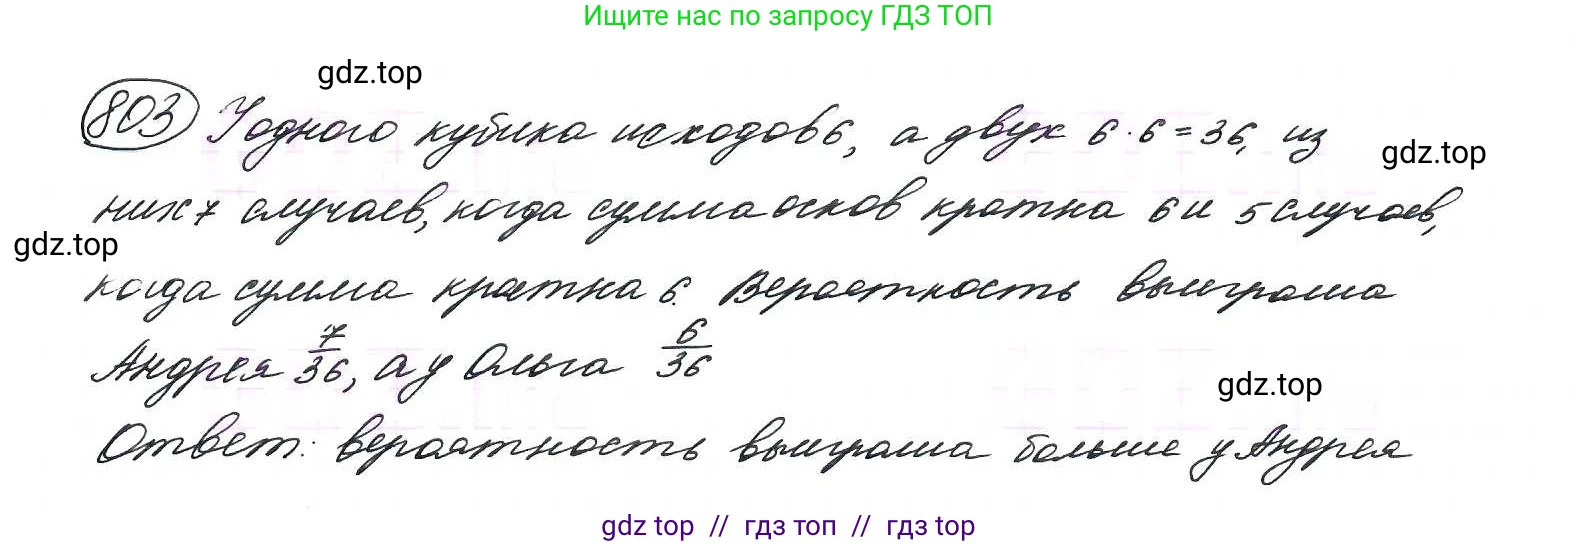 Ищите нас по запросу ГДЗ ТОП
gdz.top
803 У одного кубика исходов 6, а двух 6 · 6 = 36, из
gdz.top
них 7 случаев, когда сумма осков кратна 6 и 5 случаев,
gdz.top
когда сумма кратна 6. Вероятность выиграша
Андрея 7/36, а у Ольга 6/36
gdz.top
Ответ: вероятность выиграша больше у Андрея
gdz top // гдз топ // гдз top